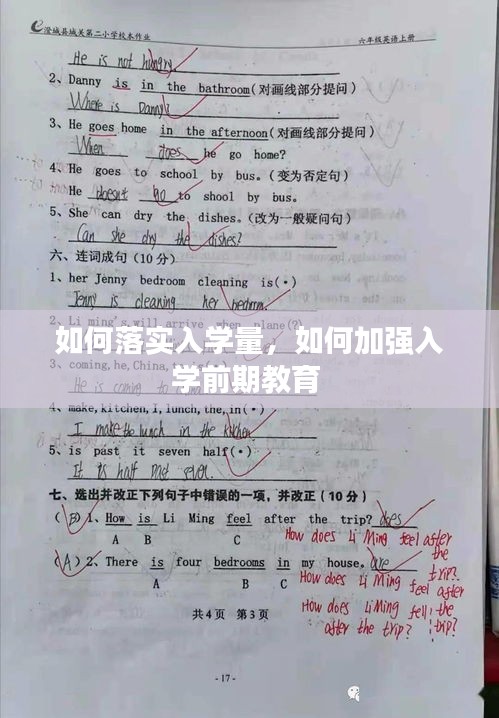 澄城县城关第二小学校本作业 六年级英语上册
He is not hungry
2、Danny is in the bathroom(对画线部分提问)
Where is Danny?
3、He goes home in the afternoon(对画线部分提问)
When does he go home?
4、He goes to school by bus.(变为否定句)
He doesn't go to shool by bus.
5、She can dry the dishes.(改为一般疑问句)
Can she dry the dishes?
六、连词成句(10分)
1、her Jenny bedroom cleaning is(•)
Jenny is cleaning her bedroom.
2、Li ming's will arrive when plane(?)
如何落实入学量，如何加强入
学前期教育
3、coming,he,China,
He is coming
4、make,kitchen,I,lunch,the,in(•)
I make the lunch in the kitchen
5、is past it seven half(•)
It is half past seven.
七、选出并改正下列句子中错误的一项，并改正(10分)
(B)1、How is Li Ming feel after the trip? does
A B C
How does Li Ming feel after the trip?
(A)2、There is four bedrooms in my house. are
A B C
How does Li Ming feel after the trip?
How does Li Ming fell after the trip?
共4页 第3页
-17-